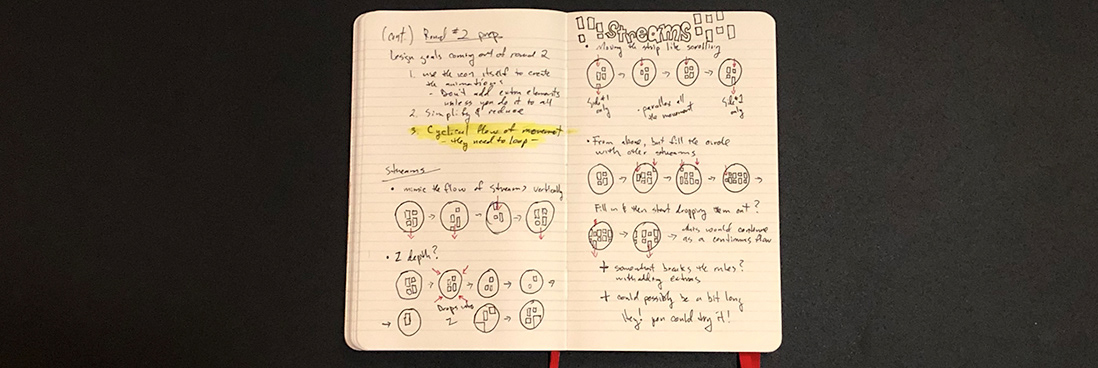 (cont.) Round #2 prep.
Design goals coming out of round 2
1. use the icon itself to create
the animations
- Don't add extra elements
unless you do it to all
2. Simplify & reduce
3. Cyclical flow of movement
- they need to loop -
Streams
• mimic the flow of streams vertically
• Z depth?
Drops into
Z
Streams
• Moving the strip like scrolling
Side #1
only
• parallax all
the movement
Side #1
only
• From above, but fill the circle
with other streams
Fill in & then start dropping them out?
this would continue
as a continuous flow
+ somewhat breaks the rules?
with adding extras
+ could possibly be a bit long
Hey! you could try it!